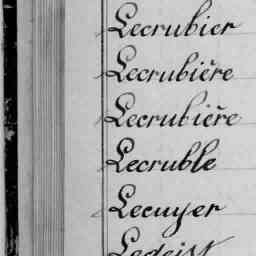 Lecrubier
Lecrubière
Lecrubière
Lecruble
Lecuyer